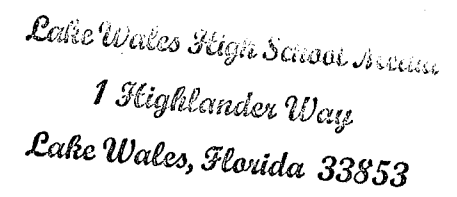 Lake Wales High School Media
1 Highlander Way
Lake Wales, Florida 33853